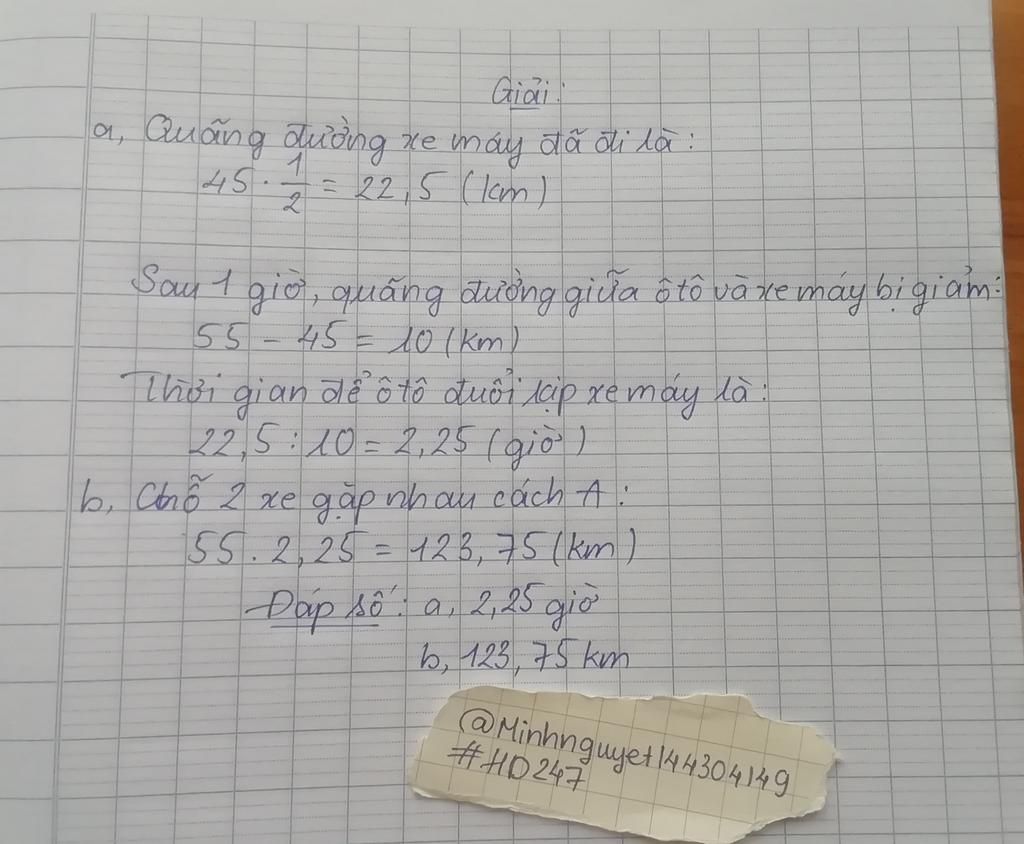 Giải:
a, Quãng đường xe máy đã đi là:
45 . 1/2 = 22,5 (km)
Sau 1 giờ, quãng đường giữa ô tô và xe máy bị giảm:
55 - 45 = 10 (km)
Thời gian để ô tô đuổi kịp xe máy là:
22,5 : 10 = 2,25 (giờ)
b, Chỗ 2 xe gặp nhau cách A:
55 . 2,25 = 123,75 (km)
Đáp số: a, 2,25 giờ
b, 123,75 km
@Minhnguyet144304149
#HD247